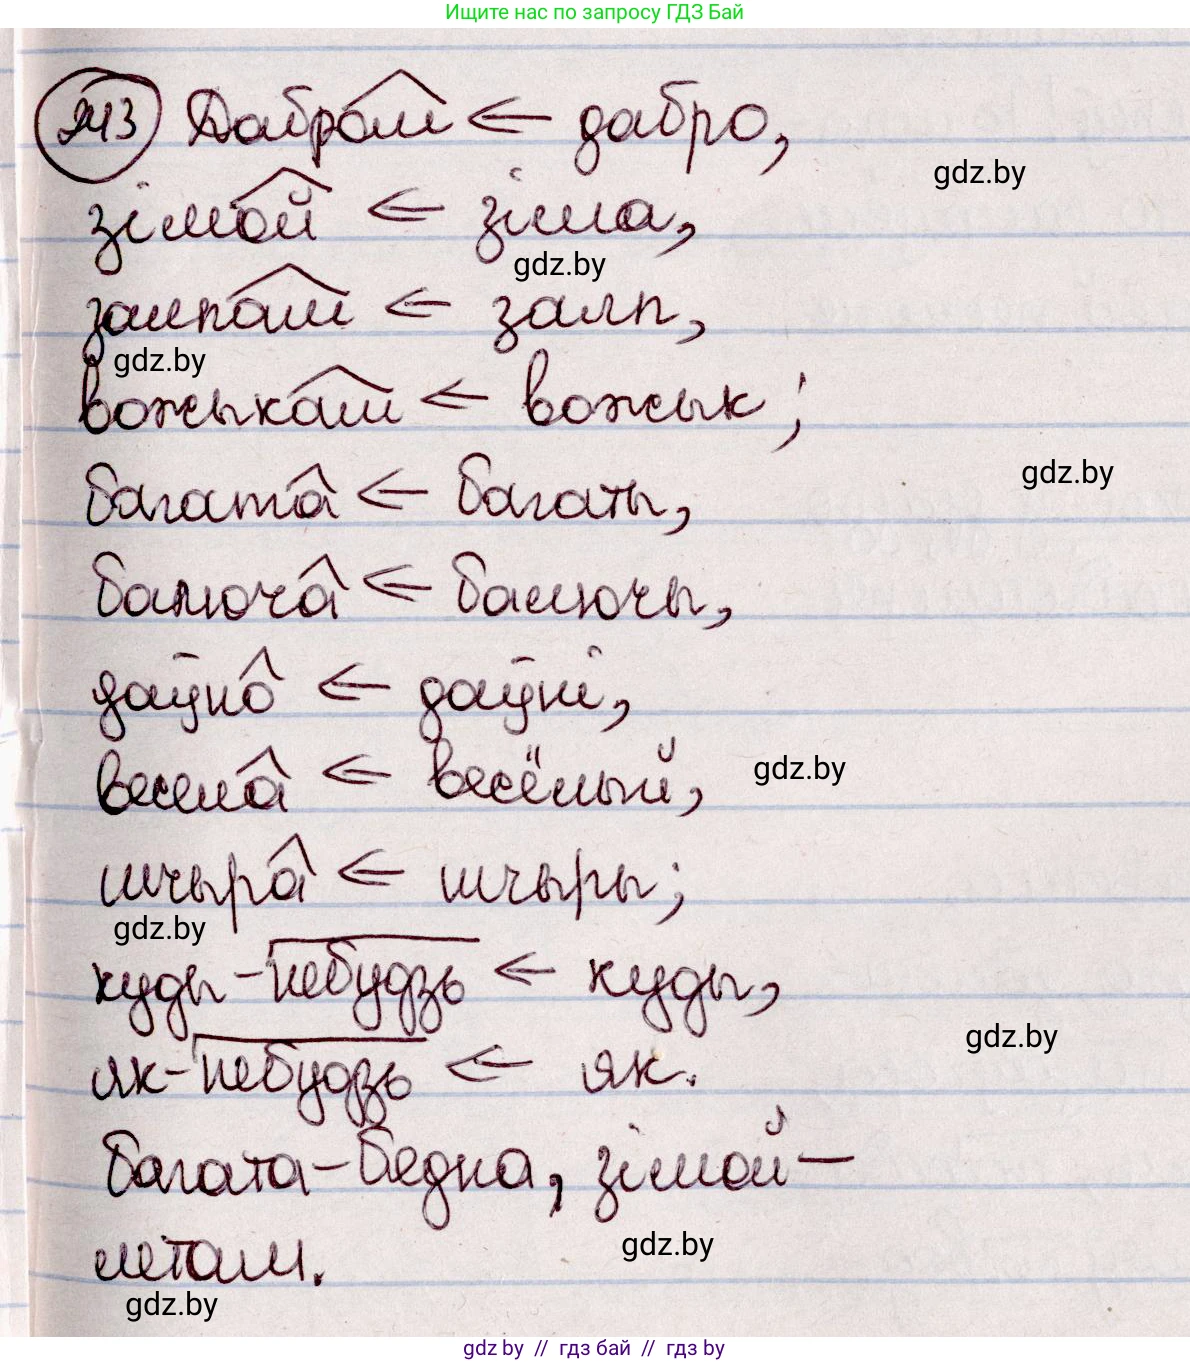 Ищите нас по запросу ГДЗ Бай
243 Дабром ← дабро,
gdz.by
зімой ← зіма,
gdz.by
залпам ← залп,
gdz.by
вожыкам ← вожык;
gdz.by
багата ← багаты,
балюча ← балючы,
даўно ← даўні,
весела ← весёлый,
gdz.by
шчыра ← шчыры;
gdz.by
куды-небудзь ← куды,
gdz.by
як-небудзь ← як.
Багата – бедна, зімой –
летам.
gdz.by
gdz.by
gdz.by // гдз бай // гдз by